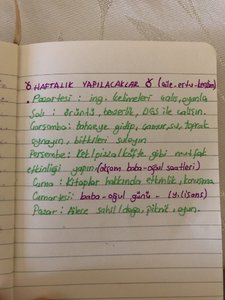 HAFTALIK YAPILACAKLAR (aile
Pazartesi: ing. kelimeleri çalış, oyunla
Salı: örüntü, beserlik, DGS ile çalışın.
Çarşamba: bahçeye gidip, çamur, su, toprak
oynayın, bitkileri sulayın
Perşembe: Kek/pizza/köfte gibi mutfak
etkinliği yapın (akşam baba-oğul saatleri)
Cuma: Kitaplar hakkında etkinlik, konuşma
Cumartesi: baba-oğul günü -
Pazar: Ailece sahil/doğa, piknik, oyun.